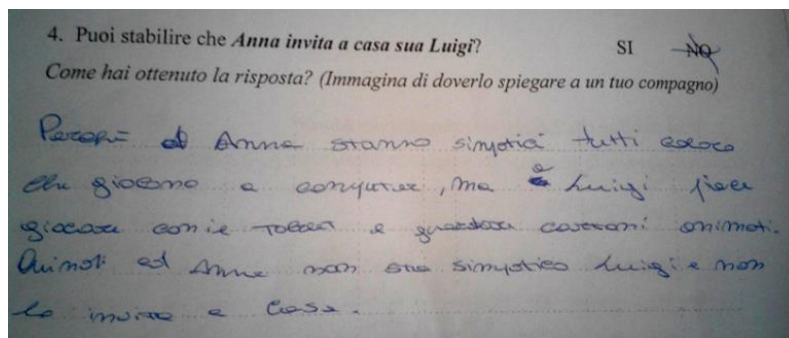 4. Puoi stabilire che Anna invita a casa sua Luigi? SI NO
Come hai ottenuto la risposta? (Immagina di doverlo spiegare a un tuo compagno)
Perché ad Anna stanno simpatici tutti coloro
che giocano a computer, ma a Luigi piace
giocare con il tablet e guardare cartoni animati.
Quindi ad Anna non sta simpatico Luigi e non
lo invita a casa.